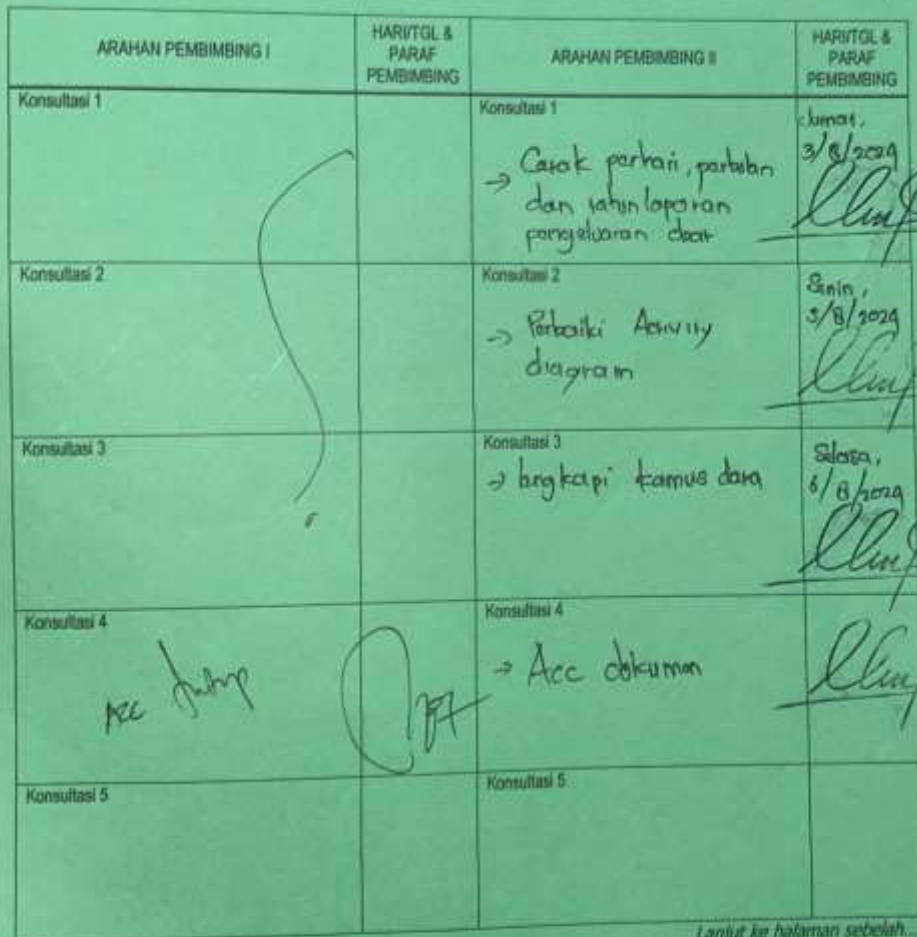 ARAHAN PEMBIMBING I
HARI/TGL &
PARAF
PEMBIMBING
ARAHAN PEMBIMBING II
HARI/TGL &
PARAF
PEMBIMBING
Konsultasi 1
Konsultasi 1
Jumat,
→ Cetak perhari, perbulan
dan tahun laporan
pengeluaran obat
Konsultasi 2
Konsultasi 2
Senin,
5/8/2024
→ Perbaiki Activity
diagram
Konsultasi 3
Konsultasi 3
→ lengkapi kamus data
Selasa,
6/8/2024
Konsultasi 4
Acc
Konsultasi 4
→ Acc dokumen
Konsultasi 5
Konsultasi 5
Lanjut ke halaman sebelah...